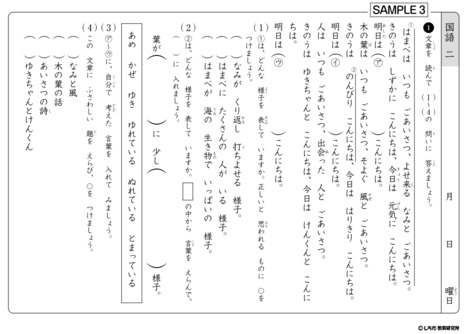 SAMPLE 3
国語 二
月 日 曜日
❶ 文章を 読んで (1)~(4)の 問いに 答えましょう。
①はまべは いつも ごあいさつ、よせ来る なみと ごあいさつ。
きのうは しずかに こんにちは、今日は 元気に こんにちは。
明日は(ア )こんにちは。
木の葉は いつも ごあいさつ、そよぐ 風と ごあいさつ。
きのうは ②のんびり こんにちは、今日は はりきり こんにちは。
明日は(イ )こんにちは。
人は いつも ごあいさつ、出会った 人と ごあいさつ。
きのうは ゆきちゃんと こんにちは、今日は けんくんと こんに
ちは。
明日は(ウ )こんにちは。
(1) ①は、どんな 様子を 表して いますか。正しいと 思われる ものに ○を
つけましょう。
( )なみが くり返し 打ちよせる 様子。
( )はまべに たくさんの 人が いる 様子。
( )はまべが 海の 生き物で いっぱいの 様子。
(2) ②は、どんな 様子を 表して いますか。□の中から 言葉を えらんで、
( )に 入れましょう。
葉が( )に 少し( )様子。
あめ かぜ ゆき ゆれている ぬれている とまっている
(3) ア~ウに、自分で 考えた 言葉を 入れて みましょう。
(4) この 文章に ふさわしい 題を えらび、○を つけましょう。
( )なみと風
( )木の葉の話
( )あいさつの詩
( )ゆきちゃんとけんくん
©しちだ・教育研究所